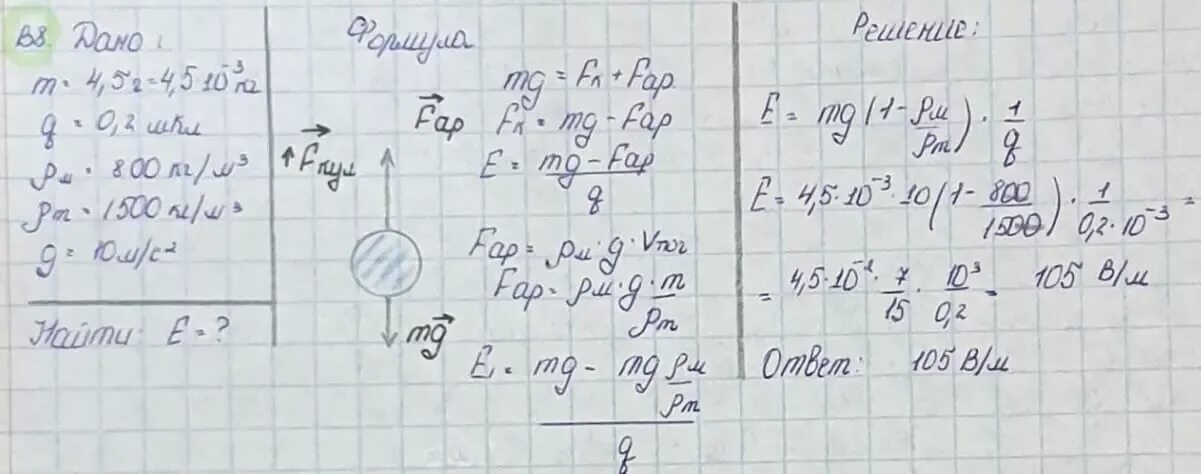 В8. Дано:
m = 4,5г = 4,5·10⁻³ кг
q = 0,2 мкл
ρм = 800 кг/м³
ρт = 1500 кг/м³
g = 10 м/с²
Найти: E = ?
Формула
mg = Fк + Fар.
Fк = mg - Fар
E = (mg - Fар)/q
Fар = ρм·g·Vпог
Fар = ρм·g·m/ρт
E = (mg - mg ρм/ρт)/q
F⃗ар
F⃗кул
mg⃗
Решение:
E = mg(1 - ρм/ρт)·1/q
E = 4,5·10⁻³·10(1 - 800/1500)·1/(0,2·10⁻³) =
= 4,5·10⁻²·7/15·10³/0,2 = 105 В/м
Ответ: 105 В/м